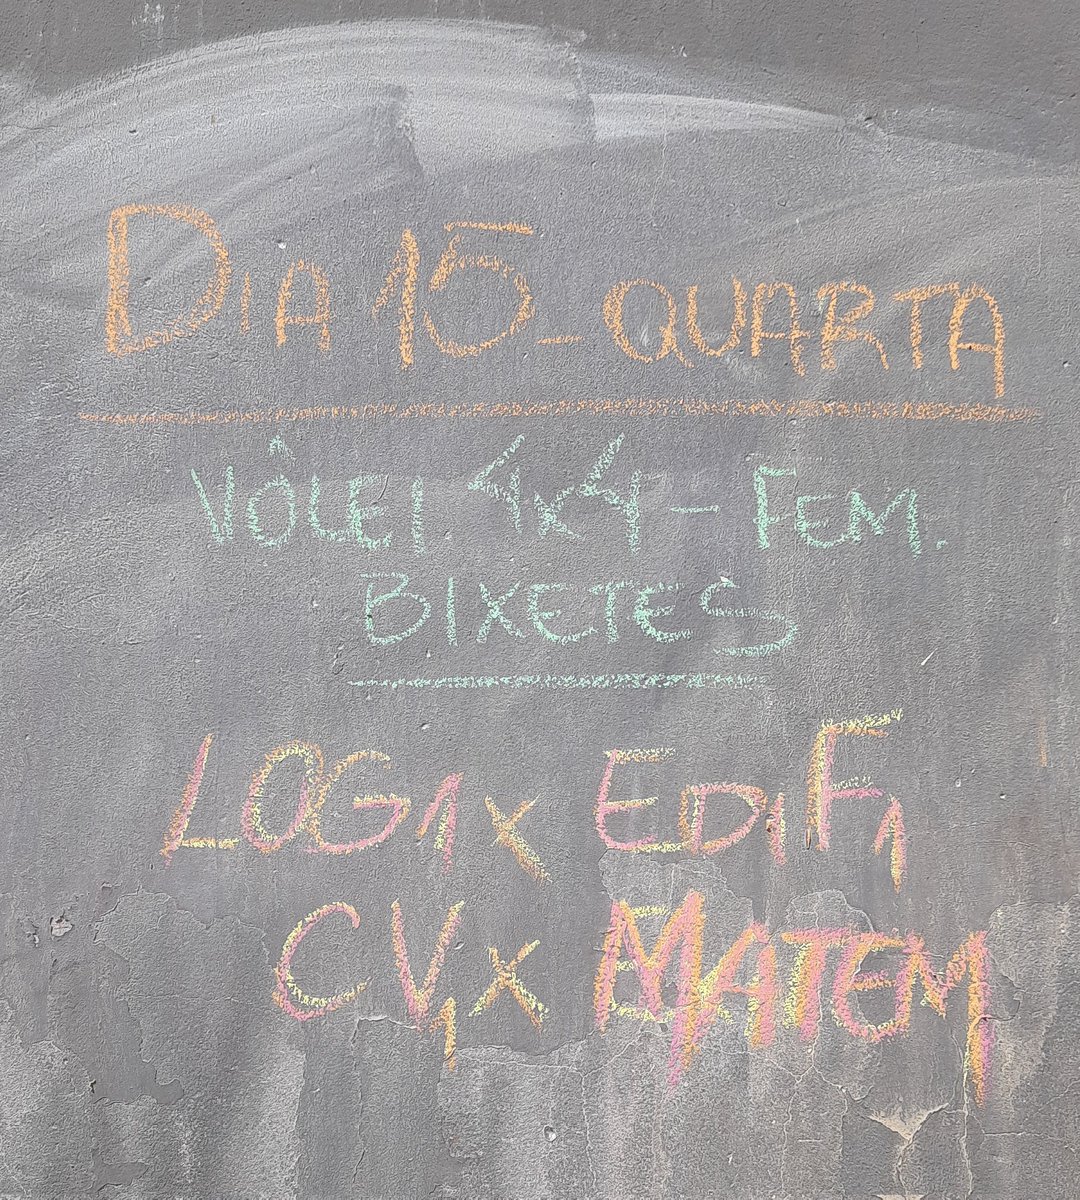 DIA 15 - QUARTA
VÔLEI 4x4 - FEM.
BIXETES
LOG1 x EDIF1
CV1 x MATEM